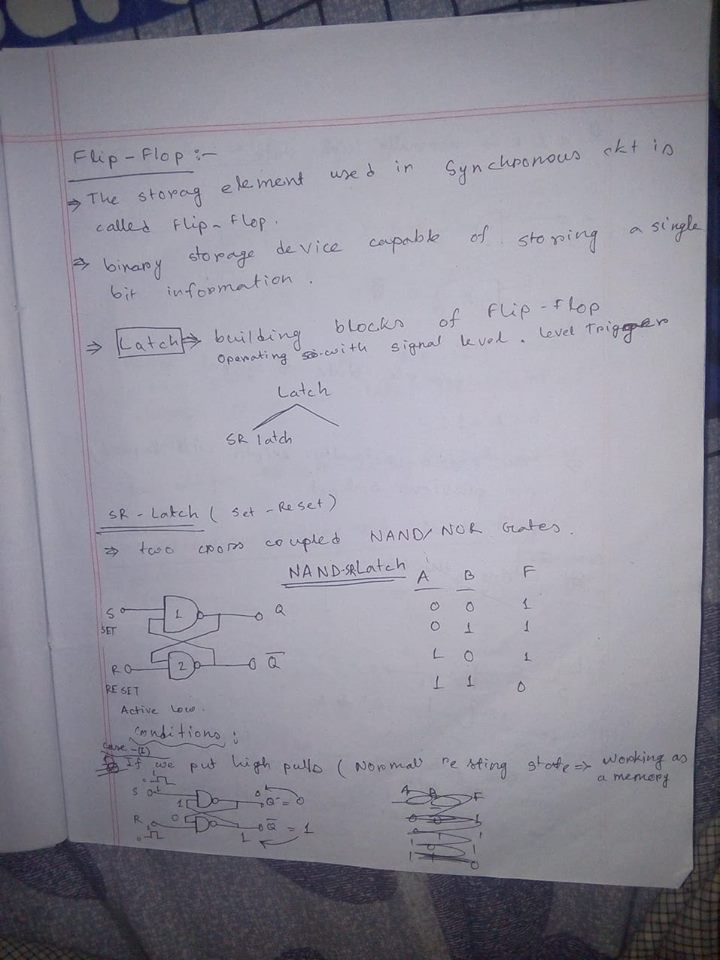 Flip-Flop :-
⇒ The storag element used in Synchronous ckt is
called Flip-Flop.
⇒ binary storage device capable of storing a single
bit information.
⇒ Latch ⇒ building blocks of Flip-Flop
Operating with signal level. Level Trigger
Latch
SR latch
SR-Latch (Set-Reset)
⇒ two cross coupled NAND/NOR Gates.
NAND-SR Latch
A B F
0 0 1
0 1 1
1 0 1
1 1 0
S 1 Q
SET
R 2 Q̅
RESET
Active Low.
Conditions:
Case-(I)
If we put high pulls (Normal resting state ⇒ Working as
a memory
S 1 0 Q = 0
R 0 1 Q̅ = 1